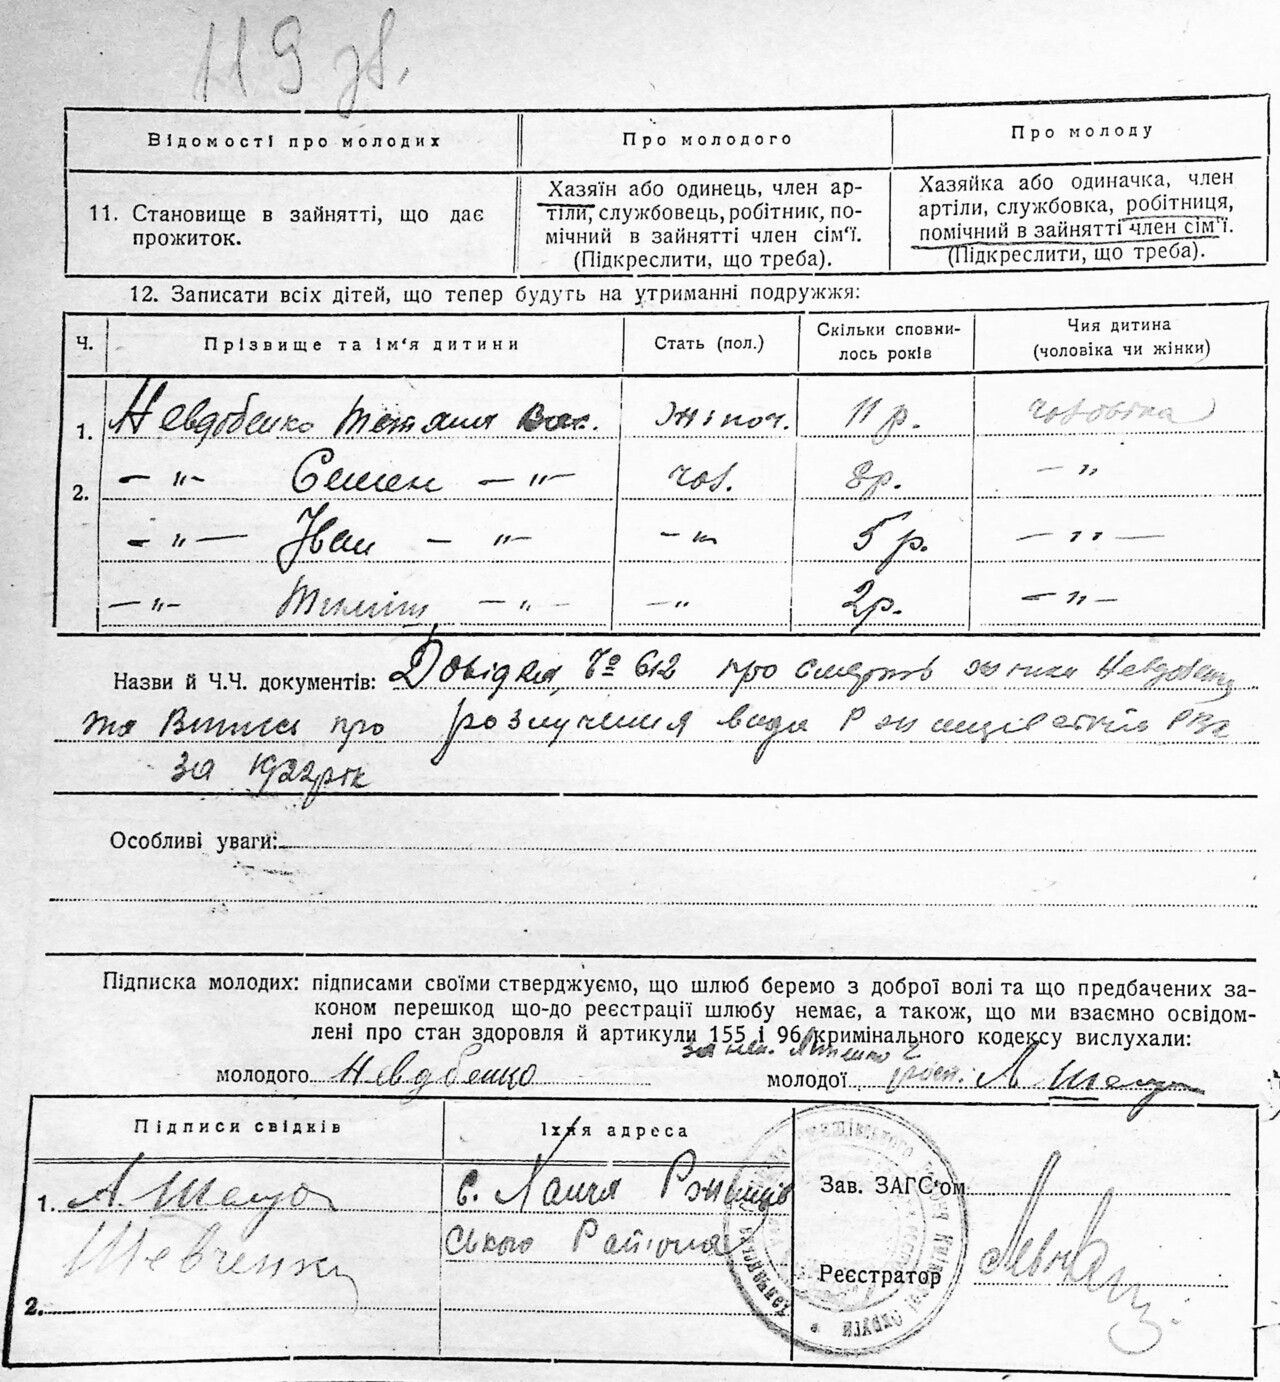 119 зв.
Відомості про молодих
Про молодого
Про молоду
11. Становище в зайнятті, що дає
прожиток.
Хазяїн або одинець, член ар-
тіли, службовець, робітник, по-
мічний в зайнятті член сім'ї.
(Підкреслити, що треба).
Хазяйка або одиначка, член
артіли, службовка, робітниця,
помічний в зайнятті член сім'ї.
(Підкреслити, що треба).
12. Записати всіх дітей, що тепер будуть на утриманні подружжя:
Ч. Прізвище та ім'я дитини
Стать (пол.)
Скільки сповни-
лось років
Чия дитина
(чоловіка чи жінки)
1. Невдобенко Тетяна Вас. жіноч. 11 р. чоловіка
2. — „ — Семен — „ — чол. 8 р. — „
— „ — Іван — „ — — „ 5 р. — „ —
— „ — Тиміш — „ — — „ 2 р. — „ —
Назви й Ч.Ч. документів: Довідка, № 612 про смерть жінки
та про розлучення
за 1922 рік
Особливі уваги:
Підписка молодих: підписами своїми стверджуємо, що шлюб беремо з доброї волі та що предбачених за-
коном перешкод що-до реєстрації шлюбу немає, а також, що ми взаємно освідом-
лені про стан здоровля й артикули 155 і 96 кримінального кодексу вислухали:
молодого Невдбенко молодої
Підписи свідків
Їхня адреса
1. с.
ського Району
Шевченко
2.
Зав. ЗАГС'ом
Реєстратор